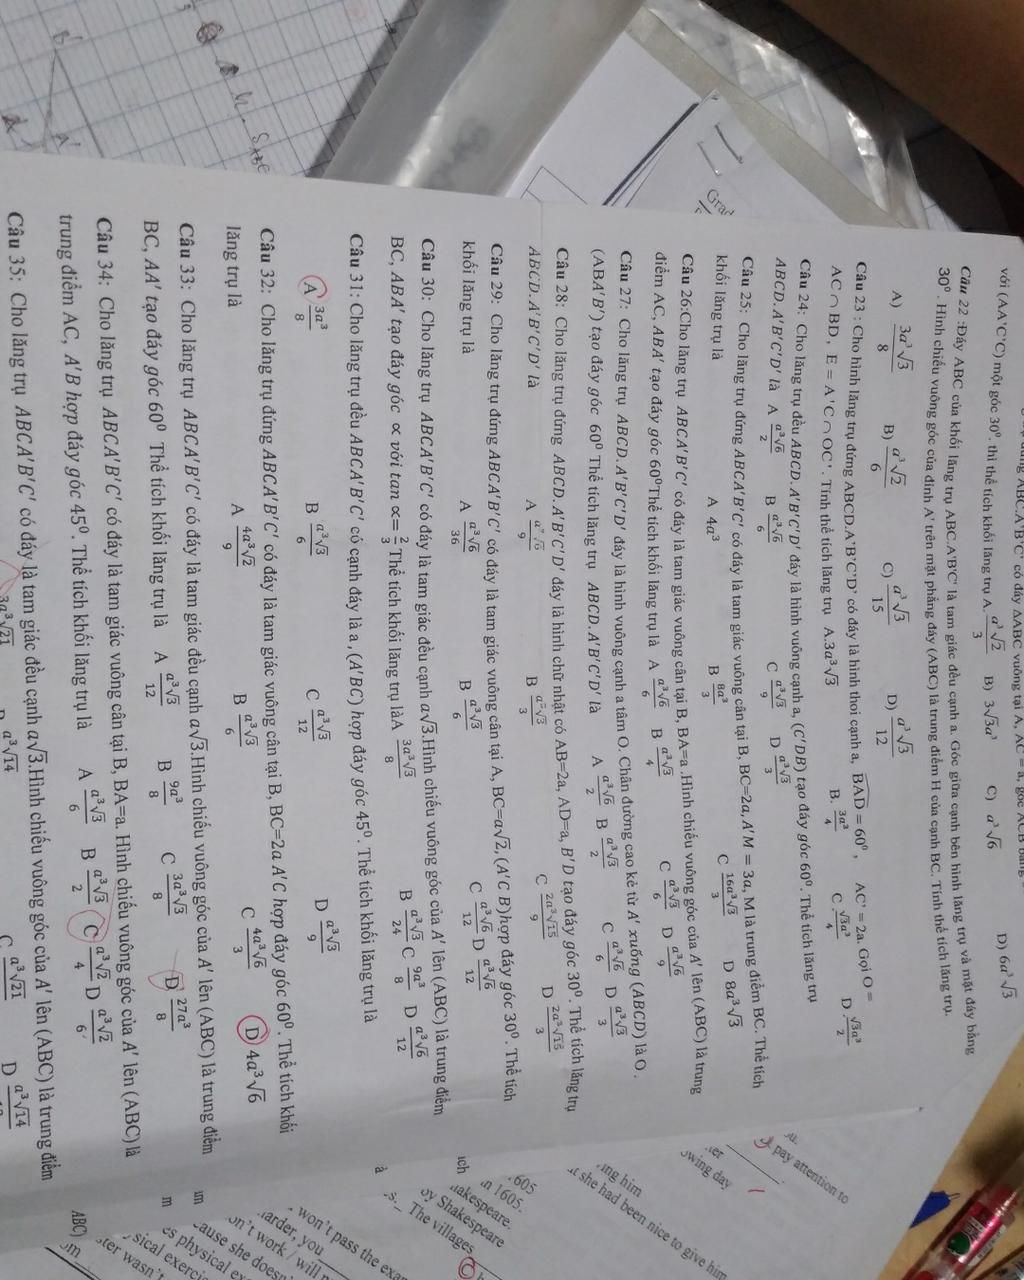 với (AA'C'C) một góc 30⁰. thì thể tích khối lăng trụ A. a³√2/3 B) 3√3a³ C) a³√6 D) 6a³√3
Câu 22 :Đáy ABC của khối lăng trụ ABC.A'B'C' là tam giác đều cạnh a. Góc giữa cạnh bên hình lăng trụ và mặt đáy bằng
30⁰ . Hình chiếu vuông góc của đỉnh A' trên mặt phẳng đáy (ABC) là trung điểm H của cạnh BC. Tính thể tích lăng trụ.
A) 3a³√3/8 B) a³√2/6 C) a³√3/15 D) a³√3/12
Câu 23 : Cho hình lăng trụ đứng ABCD.A'B'C'D' có đáy là hình thoi cạnh a, BAD = 60⁰ , AC' = 2a. Gọi O =
AC ∩ BD , E = A'C ∩ OC'. Tính thể tích lăng trụ A.3a³√3 B. 3a³/4 C √3a³/4 D. √3a³/2
Câu 24: Cho lăng trụ đều ABCD.A'B'C'D' đáy là hình vuông cạnh a, (C'DB) tạo đáy góc 60⁰. Thể tích lăng trụ
ABCD.A'B'C'D' là A a³√6/2 B a³√6/6 C a³√3/9 D a³√3/3
Câu 25: Cho lăng trụ đứng ABCA'B'C' có đáy là tam giác vuông cân tại B, BC=2a, A'M = 3a, M là trung điểm BC. Thể tích
khối lăng trụ là A 4a³ B 8a³/3 C 16a³√3/3 D 8a³√3
Câu 26:Cho lăng trụ ABCA'B'C' có đáy là tam giác vuông cân tại B, BA=a .Hình chiếu vuông góc của A' lên (ABC) là trung
điểm AC, ABA' tạo đáy góc 60⁰Thể tích khối lăng trụ là A a³√6/6 B a³√3/4 C a³√3/6 D a³√6/9
Câu 27: Cho lăng trụ ABCD.A'B'C'D' đáy là hình vuông cạnh a tâm O. Chân đường cao kẻ từ A' xuống (ABCD) là O .
(ABA'B') tạo đáy góc 60⁰ Thể tích lăng trụ ABCD.A'B'C'D' là A a³√6/2 B a³√3/2 C a³√6/6 D a³√3/3
Câu 28: Cho lăng trụ đứng ABCD.A'B'C'D' đáy là hình chữ nhật có AB=2a, AD=a, B'D tạo đáy góc 30⁰ . Thể tích lăng trụ
ABCD.A'B'C'D' là A B a³√3/3 C 2a³√15/9 D 2a³√15/3
Câu 29: Cho lăng trụ đứng ABCA'B'C' có đáy là tam giác vuông cân tại A, BC=a√2, (A'C B)hợp đáy góc 30⁰ . Thể tích
khối lăng trụ là A a³√6/36 B a³√3/6 C a³√6/12 D a³√6/12
Câu 30: Cho lăng trụ ABCA'B'C' có đáy là tam giác đều cạnh a√3.Hình chiếu vuông góc của A' lên (ABC) là trung điểm
BC, ABA' tạo đáy góc ∝ với tan ∝= Thể tích khối lăng trụ làA 3a³√3/8 B a³√3/24 C 9a³/8 D a³√6/12
Câu 31: Cho lăng trụ đều ABCA'B'C' có cạnh đáy là a , (A'BC) hợp đáy góc 45⁰ . Thể tích khối lăng trụ là
A 3a³/8 B a³√3/6 C a³√3/12 D a³√3/9
Câu 32: Cho lăng trụ đứng ABCA'B'C' có đáy là tam giác vuông cân tại B, BC=2a A'C hợp đáy góc 60⁰. Thể tích khối
lăng trụ là A 4a³√2/9 B a³√3/6 C 4a³√6/3 D 4a³√6
Câu 33: Cho lăng trụ ABCA'B'C' có đáy là tam giác đều cạnh a√3.Hình chiếu vuông góc của A' lên (ABC) là trung điểm
BC, AA' tạo đáy góc 60⁰ Thể tích khối lăng trụ là A a³√3/12 B 9a³/8 C 3a³√3/8 D 27a³/8
Câu 34: Cho lăng trụ ABCA'B'C' có đáy là tam giác vuông cân tại B, BA=a. Hình chiếu vuông góc của A' lên (ABC)là
trung điểm AC, A'B hợp đáy góc 45⁰ . Thể tích khối lăng trụ là A a³√3/6 B a³√3/2 C a³√2/4 D a³√2/6
Câu 35: Cho lăng trụ ABCA'B'C' có đáy là tam giác đều cạnh a√3.Hình chiếu vuông góc của A' lên (ABC) là trung điểm
3a³√21 a³√14 C a³√21 D a³√14
pay attention to
owing day
she had been nice to give him
ing him
1605.
in 1605.
Shakespeare
The villages
won't pass the
harder, you
on't work / will
cause she
es physical
sical
ster wasn't
ABC)